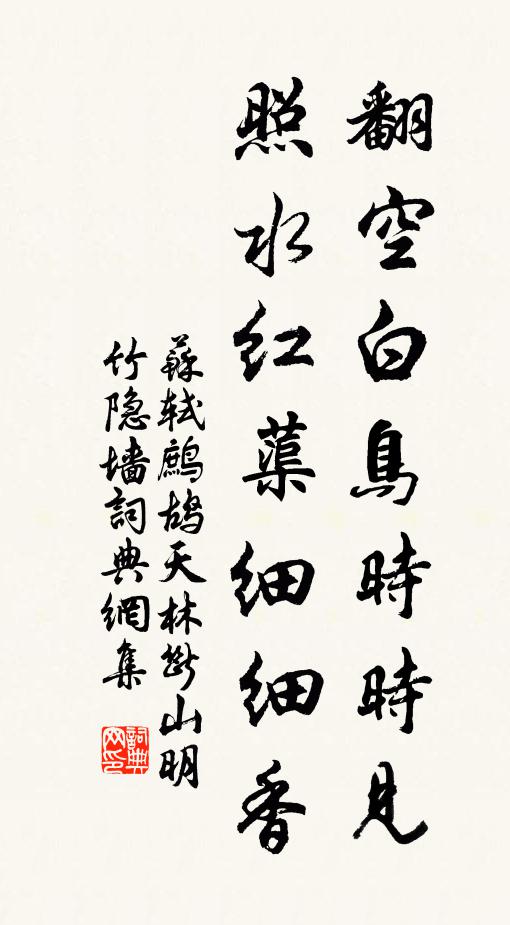 翻空白鳥時時見
照水紅蕖細細香
蘇軾鷓鴣天林斷山明
竹隐墻詞典網集
詞典
网印